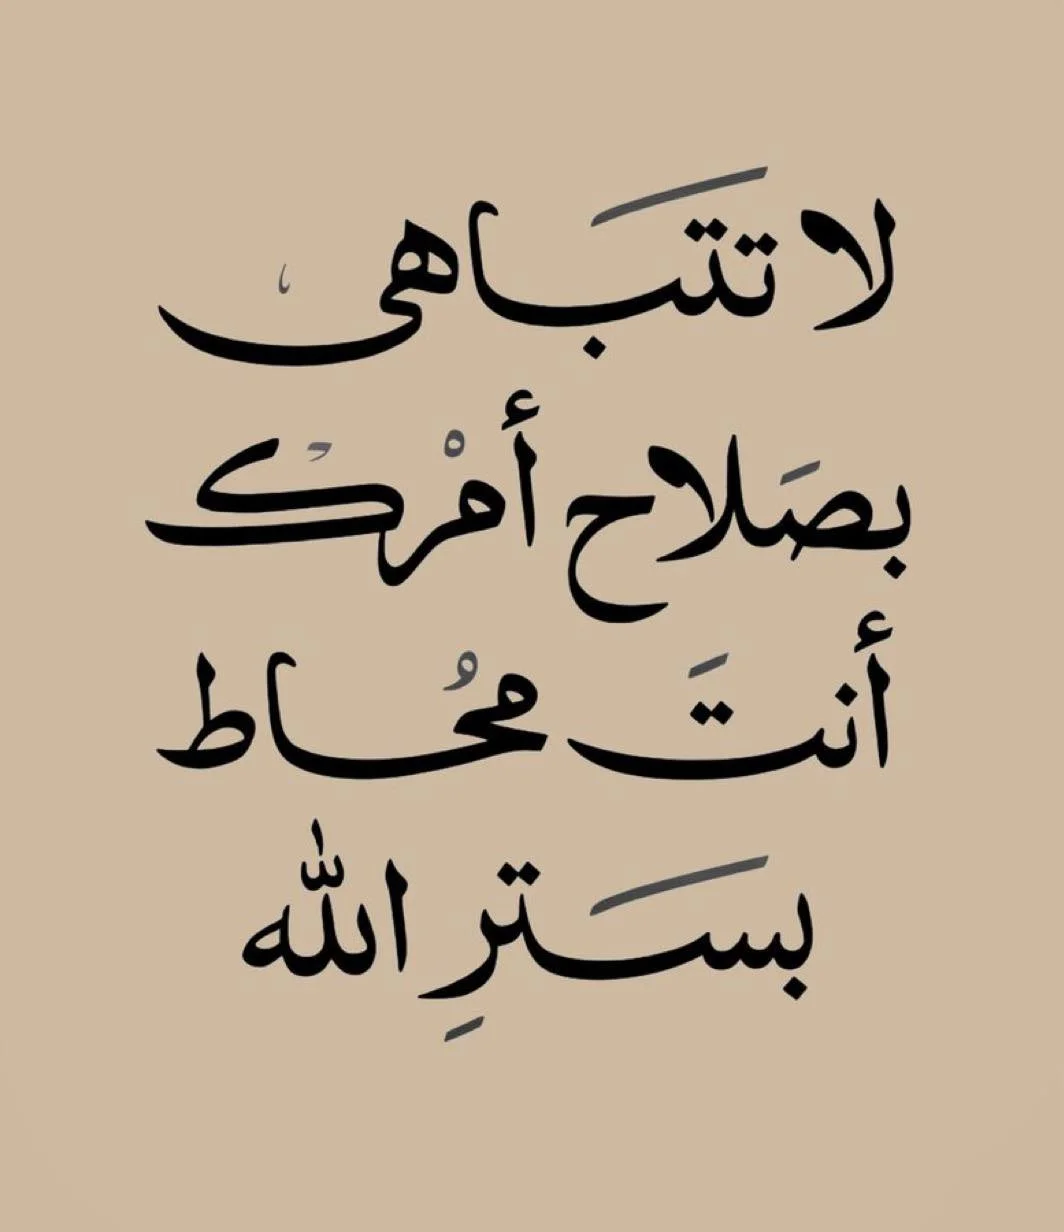 لا تتَباهى
بصَلاح أمْرك
أنتَ مُحاط
بستَرِ الله